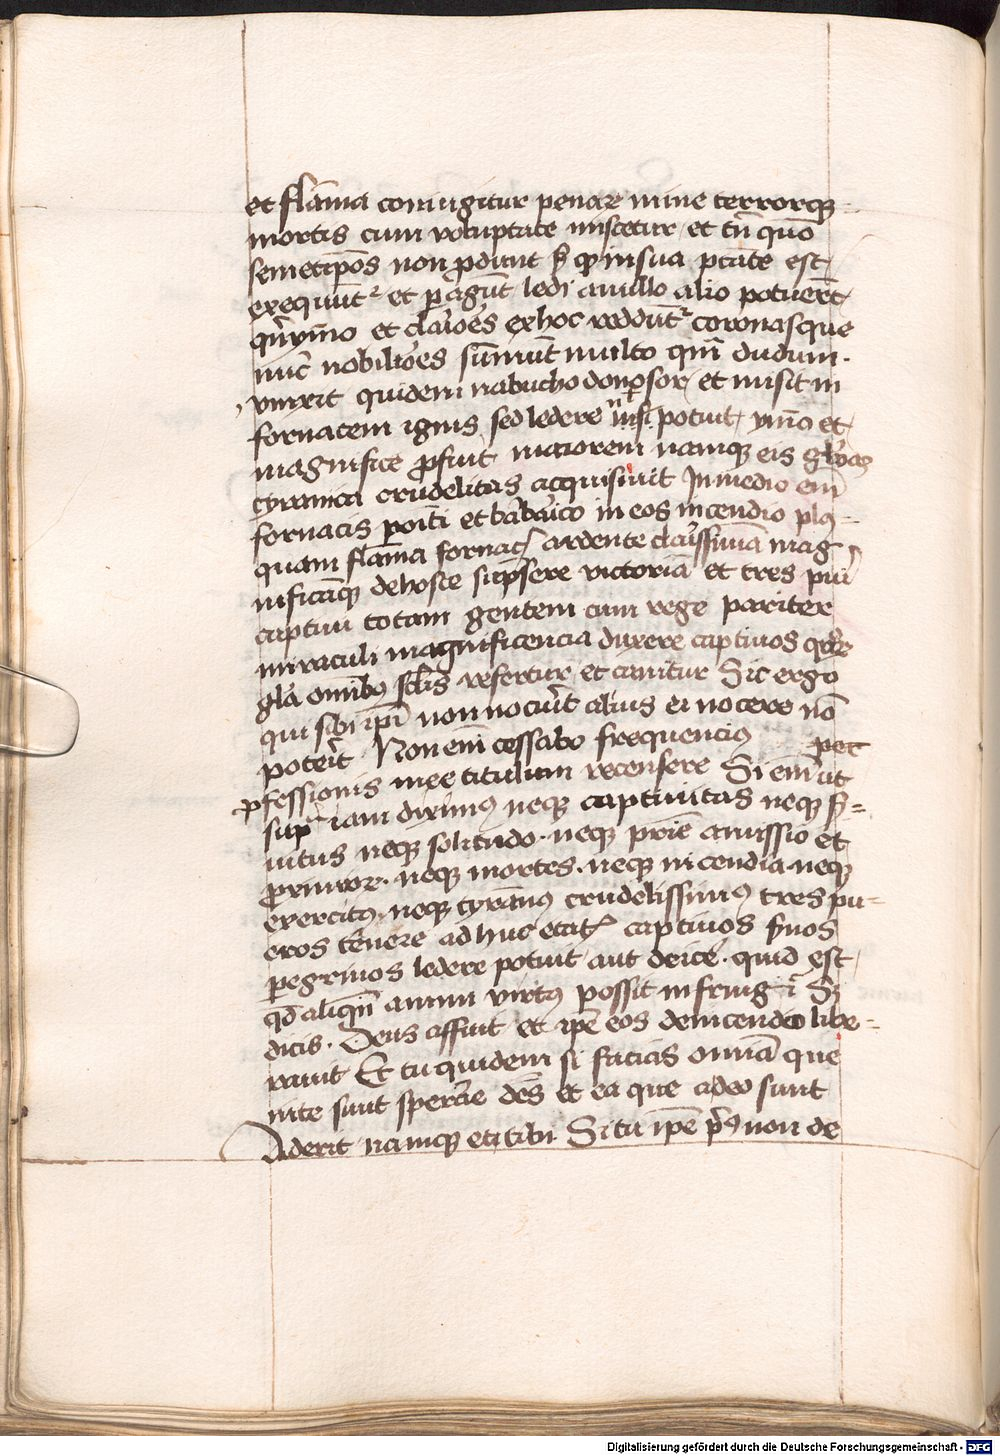 et flām̄a coniugitur penaꝝ mine terrorqꝫ
mortis cum voluptate miscetur et tn̄ quōo
semetip̄os non ꝓdunt sꝫ qꝫ in sua ptāte est
exequūtᷣ et ꝑagūt ledi a nullo alio potuer̄t
qn̄ymo et clar̄ioēs ex hoc reddūtᷣ coronasque
nūc nobiliōes sūmūt multo qm̄ dudum·
vinxit quidem nabuchodonosor et misit in
fornacem ignis sed ledere nō potuit ymō et
magnifice ꝓfuit maiorem namqꝫ eis gloriā
tyranica crudelitas acquisiuit In medio em̄
fornacis poīti et barbaīco in eos incendio plꝰ
quam flām̄a fornacꝭ ardente clarissimā mag
nificāqꝫ de hoste sūpsere victoriā et tres pūi
captiui totam gentem cum rege pariter
miraculi magnificencia duxere captiuos
gla om̄ibꝰ sclis refertur et canitur Sic ergo
qui sibi ip̄i non nocuīt alius ei nocere nō
poterit Non em̄ cessabo frequencius
ꝓfessionis mee titulum recensere Si em̄ ut
supᷓ iam diximꝰ neqꝫ captiuitas neqꝫ sꝰ=
uitus neqꝫ solitudo· neqꝫ prīe amissio et
ꝓximoꝝ· neqꝫ mortes· neqꝫ incendia neqꝫ
exercitꝰ· neqꝫ tyrānꝰ crudelissimꝰ tres pu=
eros tenere adhuc etatꝭ captiuos suos
ꝑegrinos ledere potuit aut deīce· quid est
qd̄ aliqn̄ animi virtꝰ possit infringi Sꝫ
dicis· Deus affuit et ip̄e eos de incendio libe=
rauit Et tu quidem si facias om̄ia que
in te sunt speraē des et ea que a deo sunt
Aderit namqꝫ et tibi Si tu ip̄e pꝰ non de